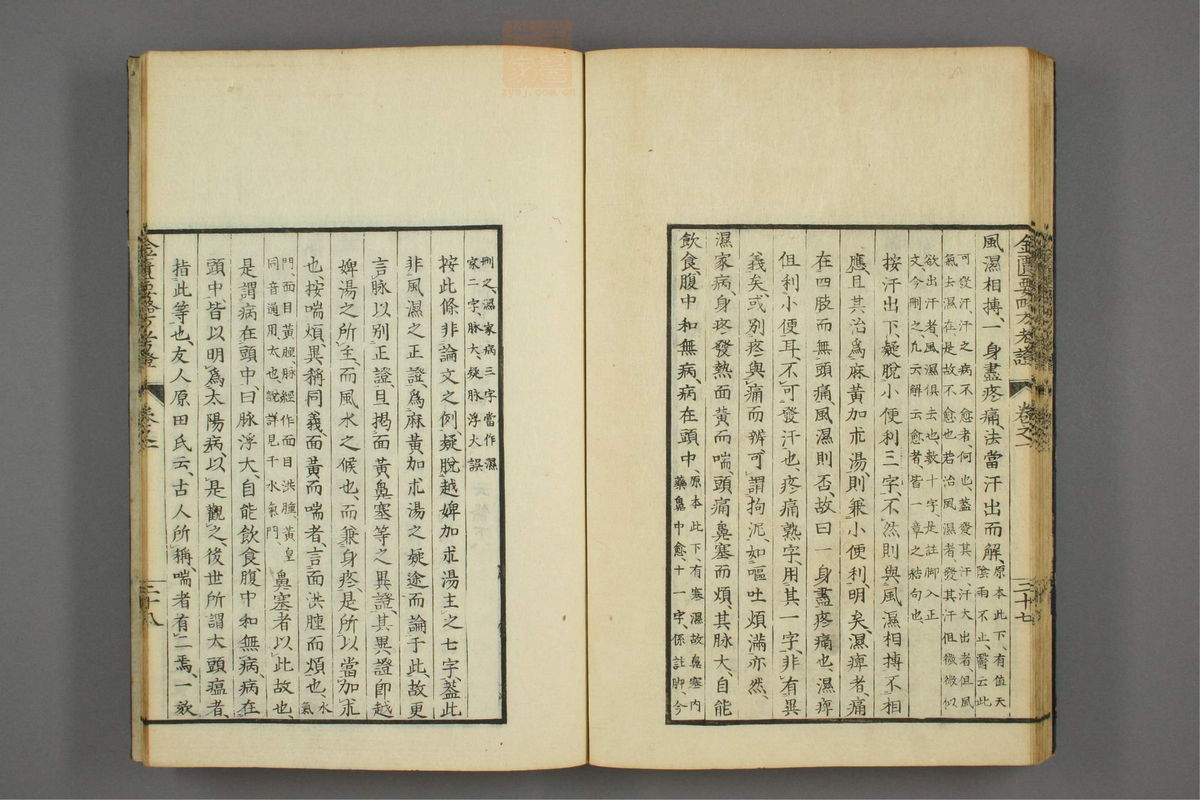 金匱要略方考證 卷之二 三十七
風濕相摶、一身盡疼痛、法當汗出而解、原本此下、有值天陰雨不止、醫云此
可發汗、汗之病不愈者、何也、蓋發其汗、汗大出者、但風氣去濕在、是故不愈也、若治風濕者、發其汗、但微微似
欲出汗者、風濕俱去也、數十字、是註脚入正文、今刪之、凡云解云愈者、皆一章之結句也、
按汗出下疑脫小便利三字、不然則與風濕相摶不相
應、且其治爲麻黃加朮湯、則兼小便利、明矣、濕痺者、痛
在四肢而無頭痛、風濕則否、故曰一身盡疼痛也、濕痺
但利小便耳、不可發汗也、疼痛熟字、用其一字、非有異
義矣、或別疼與痛而辨、可謂拘泥、如嘔吐煩滿亦然、
濕家病、身疼發熱面黃而喘、頭痛鼻塞而煩、其脉大、自能
飲食、腹中和無病、病在頭中、原本此下有寒濕故鼻塞內藥鼻中愈十一字、係註脚、今
刪之、濕家病三字當作濕家二字、脉大、疑脉浮大誤
按此條非論文之例、疑脫越婢加朮湯主之七字、蓋此
非風濕之正證、爲麻黃加朮湯之疑途而論于此、故更
言脉以別正證、且揭面黃鼻塞等之異證、其異證卽越
婢湯之所主、而風水之候也、而兼身疼、是所以當加朮
也、按喘煩、異稱同義、面黃而喘者、言面洪腫而煩也、水氣
門、面目黃腫、脉經作面目洪腫、黃皇同音通用、大也、說詳見于水氣門、鼻塞者以此故也、
是謂病在頭中、曰脉浮大、自能飲食、腹中和無病、病在
頭中、皆以明爲太陽病、以是觀之、後世所謂大頭瘟者、
指此等也、友人原田氏云、古人所稱、喘者有二焉、一欬
金匱要略方考證 卷之二 三十八